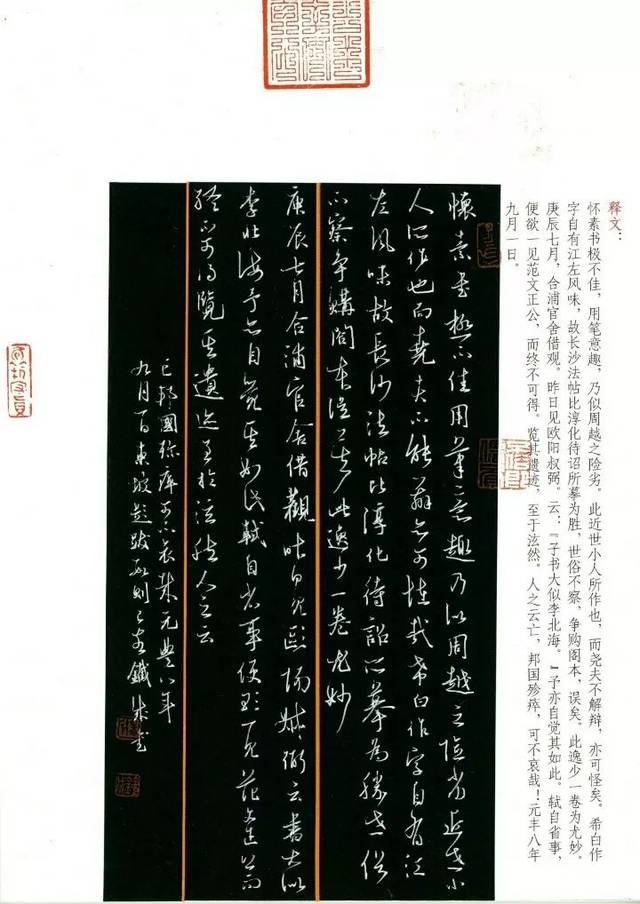 释文：
怀素书极不佳，用笔意趣，乃似周越之险劣。此近世小人所作也，而尧夫不解辩，亦可怪矣。希白作
字自有江左风味，故长沙法帖比淳化待诏所摹为胜，世俗不察，争购阁本，误矣。此逸少一卷为尤妙。
庚辰七月，合浦官舍借观。昨日见欧阳叔弼。云：『子书大似李北海。』予亦自觉其如此。轼自省事，
便欲一见范文正公，而终不可得。览其遗迹，至于泫然。人之云亡，邦国殄瘁，可不哀哉！元丰八年
九月一日。
怀素书极不佳用笔意趣乃似周越之险劣近世小
人所作也而尧夫不能辩亦可怪哉希白作字自有江
左风味故长沙法帖比淳化待诏所摹为胜世俗
不察争購阁本误矣此逸少一卷尤妙
庚辰七月合浦官舍借觀昨日见歐陽叔弼云書大似
李北海予亦自觉其如此轼自省事便欲一见范文正公而
终不可得覽其遺迹至於泫然人之云
亡邦國殄瘁可不哀哉元豐八年
九月一日東坡題跋二则